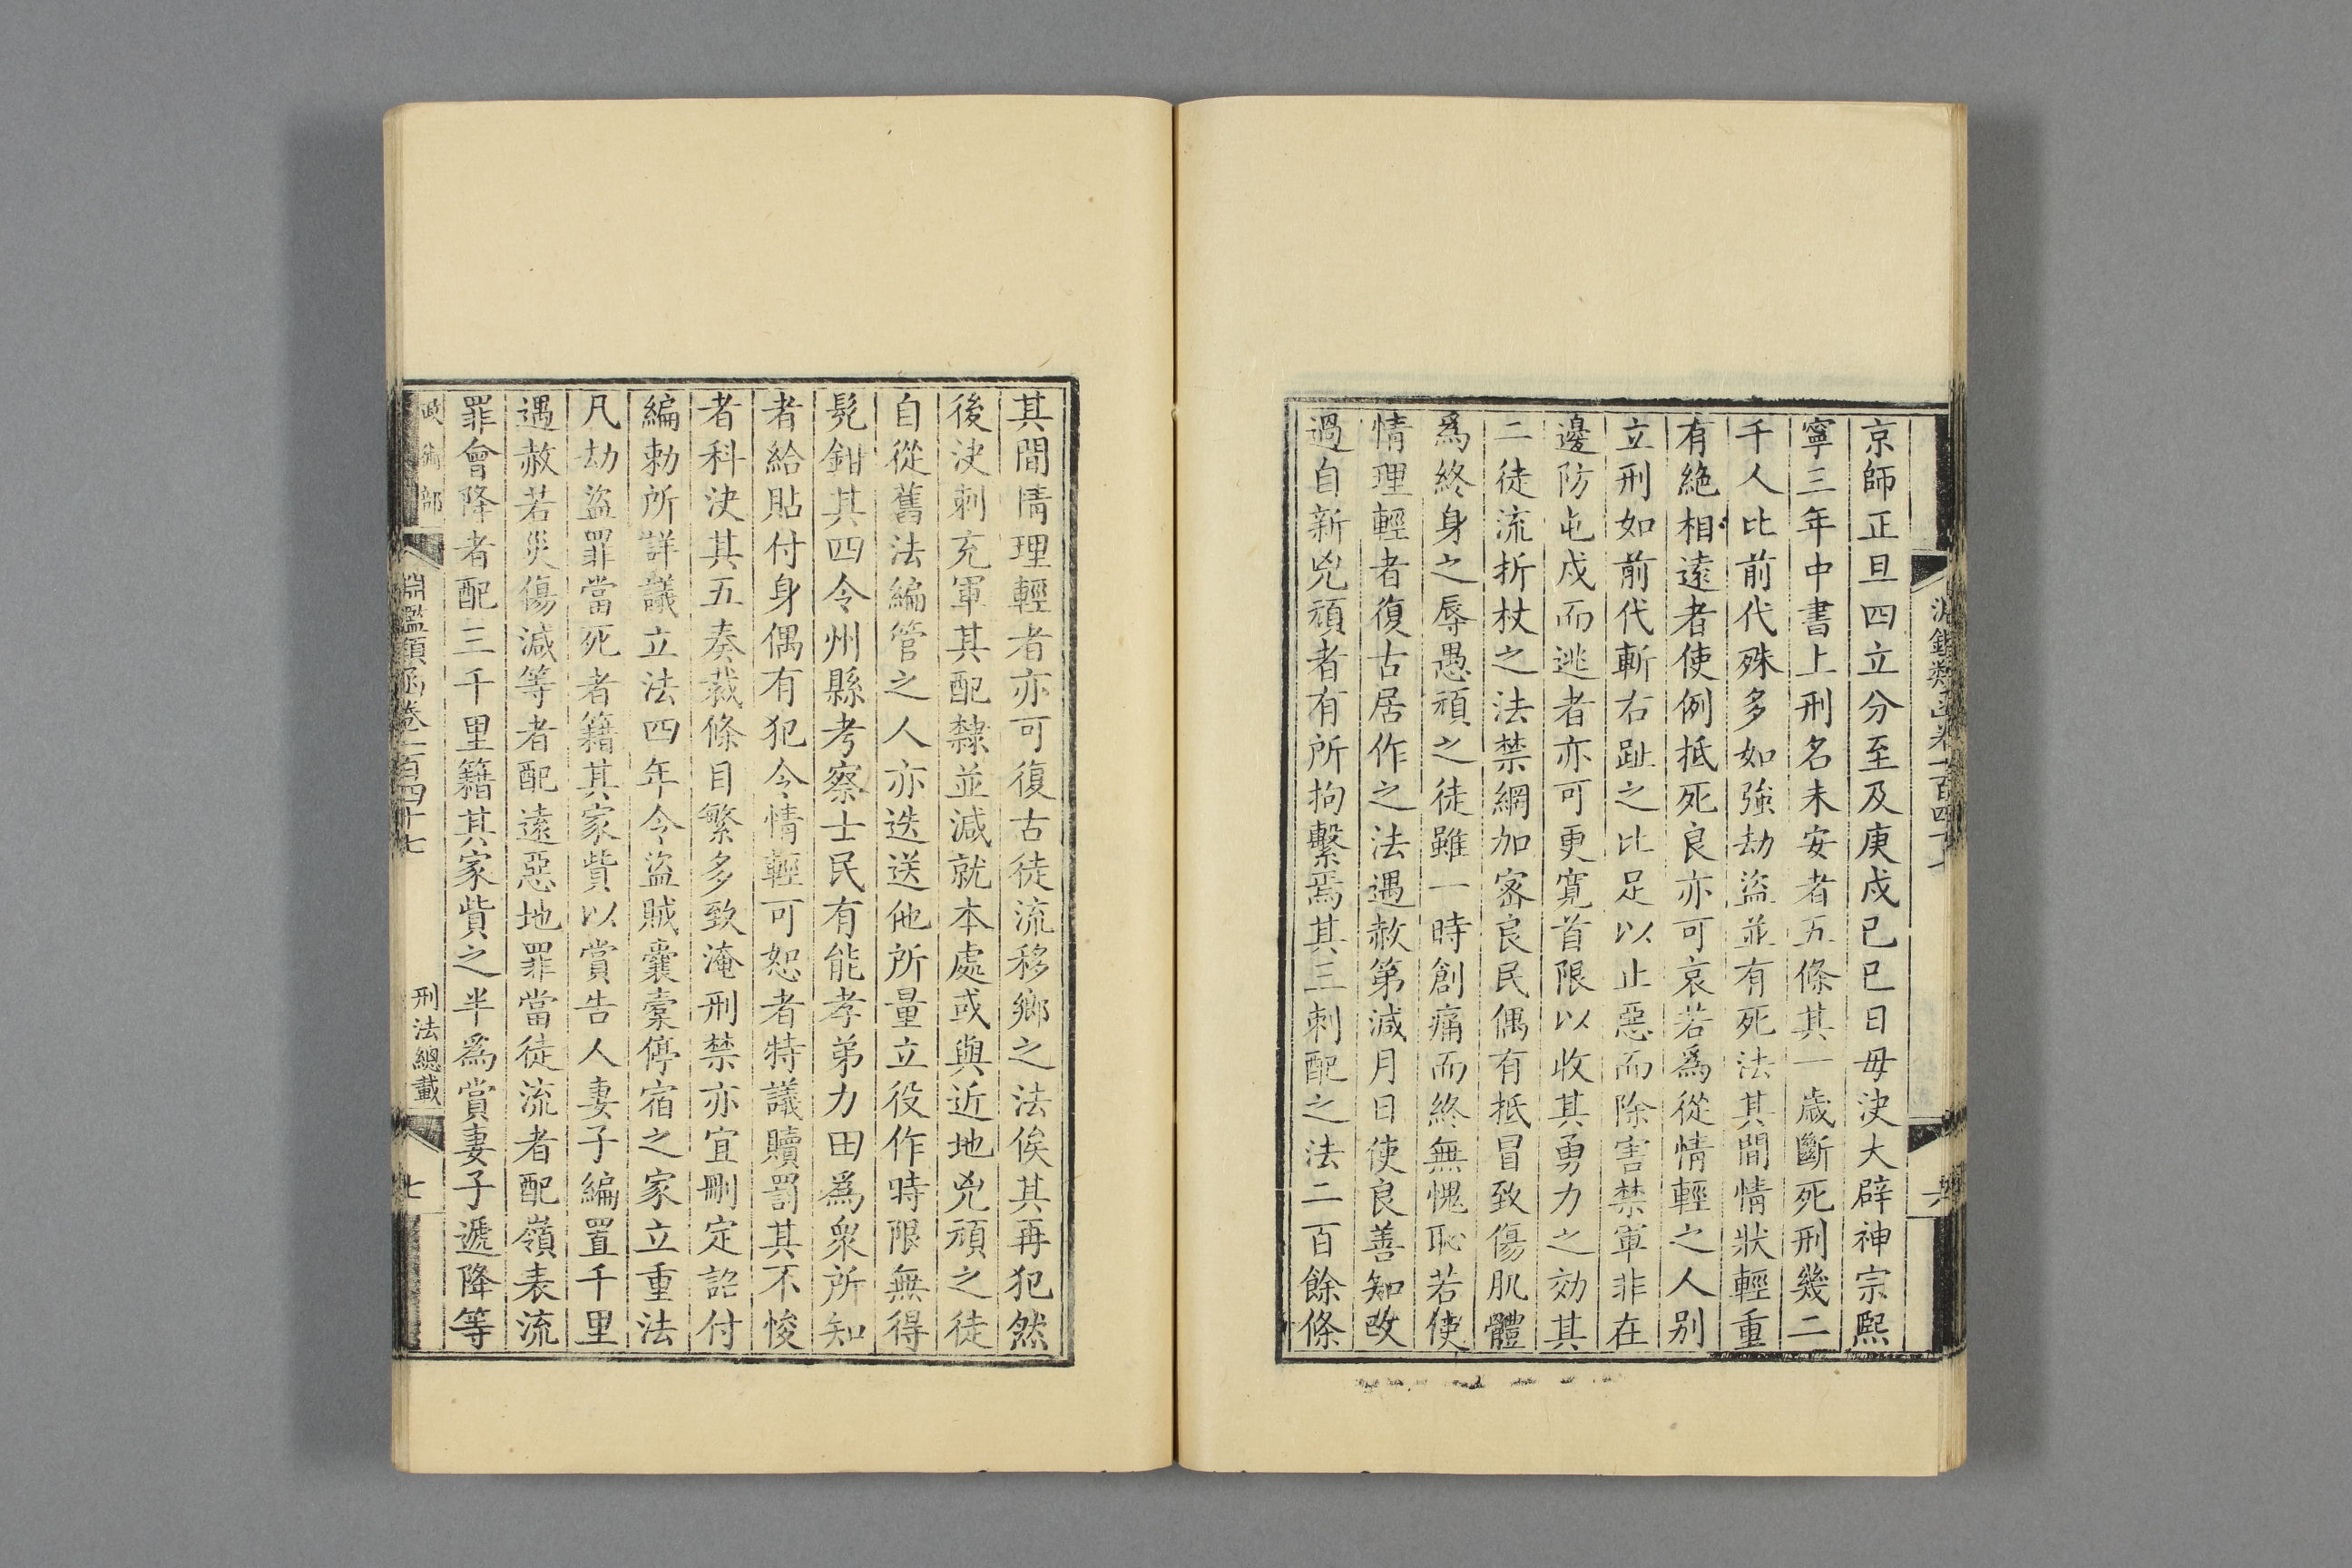 京師正旦四立分至及庚戌已巳日毋決大辟神宗熙
寧三年中書上刑名未安者五條其一歲斷死刑幾二
千人比前代殊多如強劫盜並有死法其間情狀輕重
有絶相遠者使例抵死良亦可哀若爲從情輕之人别
立刑如前代斬右趾之比足以止惡而除害禁軍非在
邊防屯戍而逃者亦可更寛首限以收其勇力之効其
二徒流折杖之法禁綱加宻良民偶有抵冒致傷肌體
爲終身之辱愚頑之徒雖一時創痛而終無愧恥若使
情理輕者復古居作之法遇赦第減月日使良善知改
過自新兇頑者有所拘繫焉其三刺配之法二百餘條
其間情理輕者亦可復古徒流移鄉之法俟其再犯然
後決刺充軍其配隸並減就本處或與近地兇頑之徒
自從舊法編管之人亦迭送他所量立役作時限無得
髠鉗其四令州縣考察士民有能孝弟力田爲衆所知
者給貼付身偶有犯令情輕可恕者特議贖罰其不悛
者科決其五奏裁條目繁多致淹刑禁亦宜刪定詔付
編勅所詳議立法四年令盜賊囊橐停宿之家立重法
凡劫盜罪當死者籍其家貲以賞告人妻子編置千里
遇赦若災傷減等者配遠惡地罪當徒流者配嶺表流
罪會降者配三千里籍其家貲之半爲賞妻子遞降等
政術部 淵鑑類函卷一百四十七 刑法總載 七